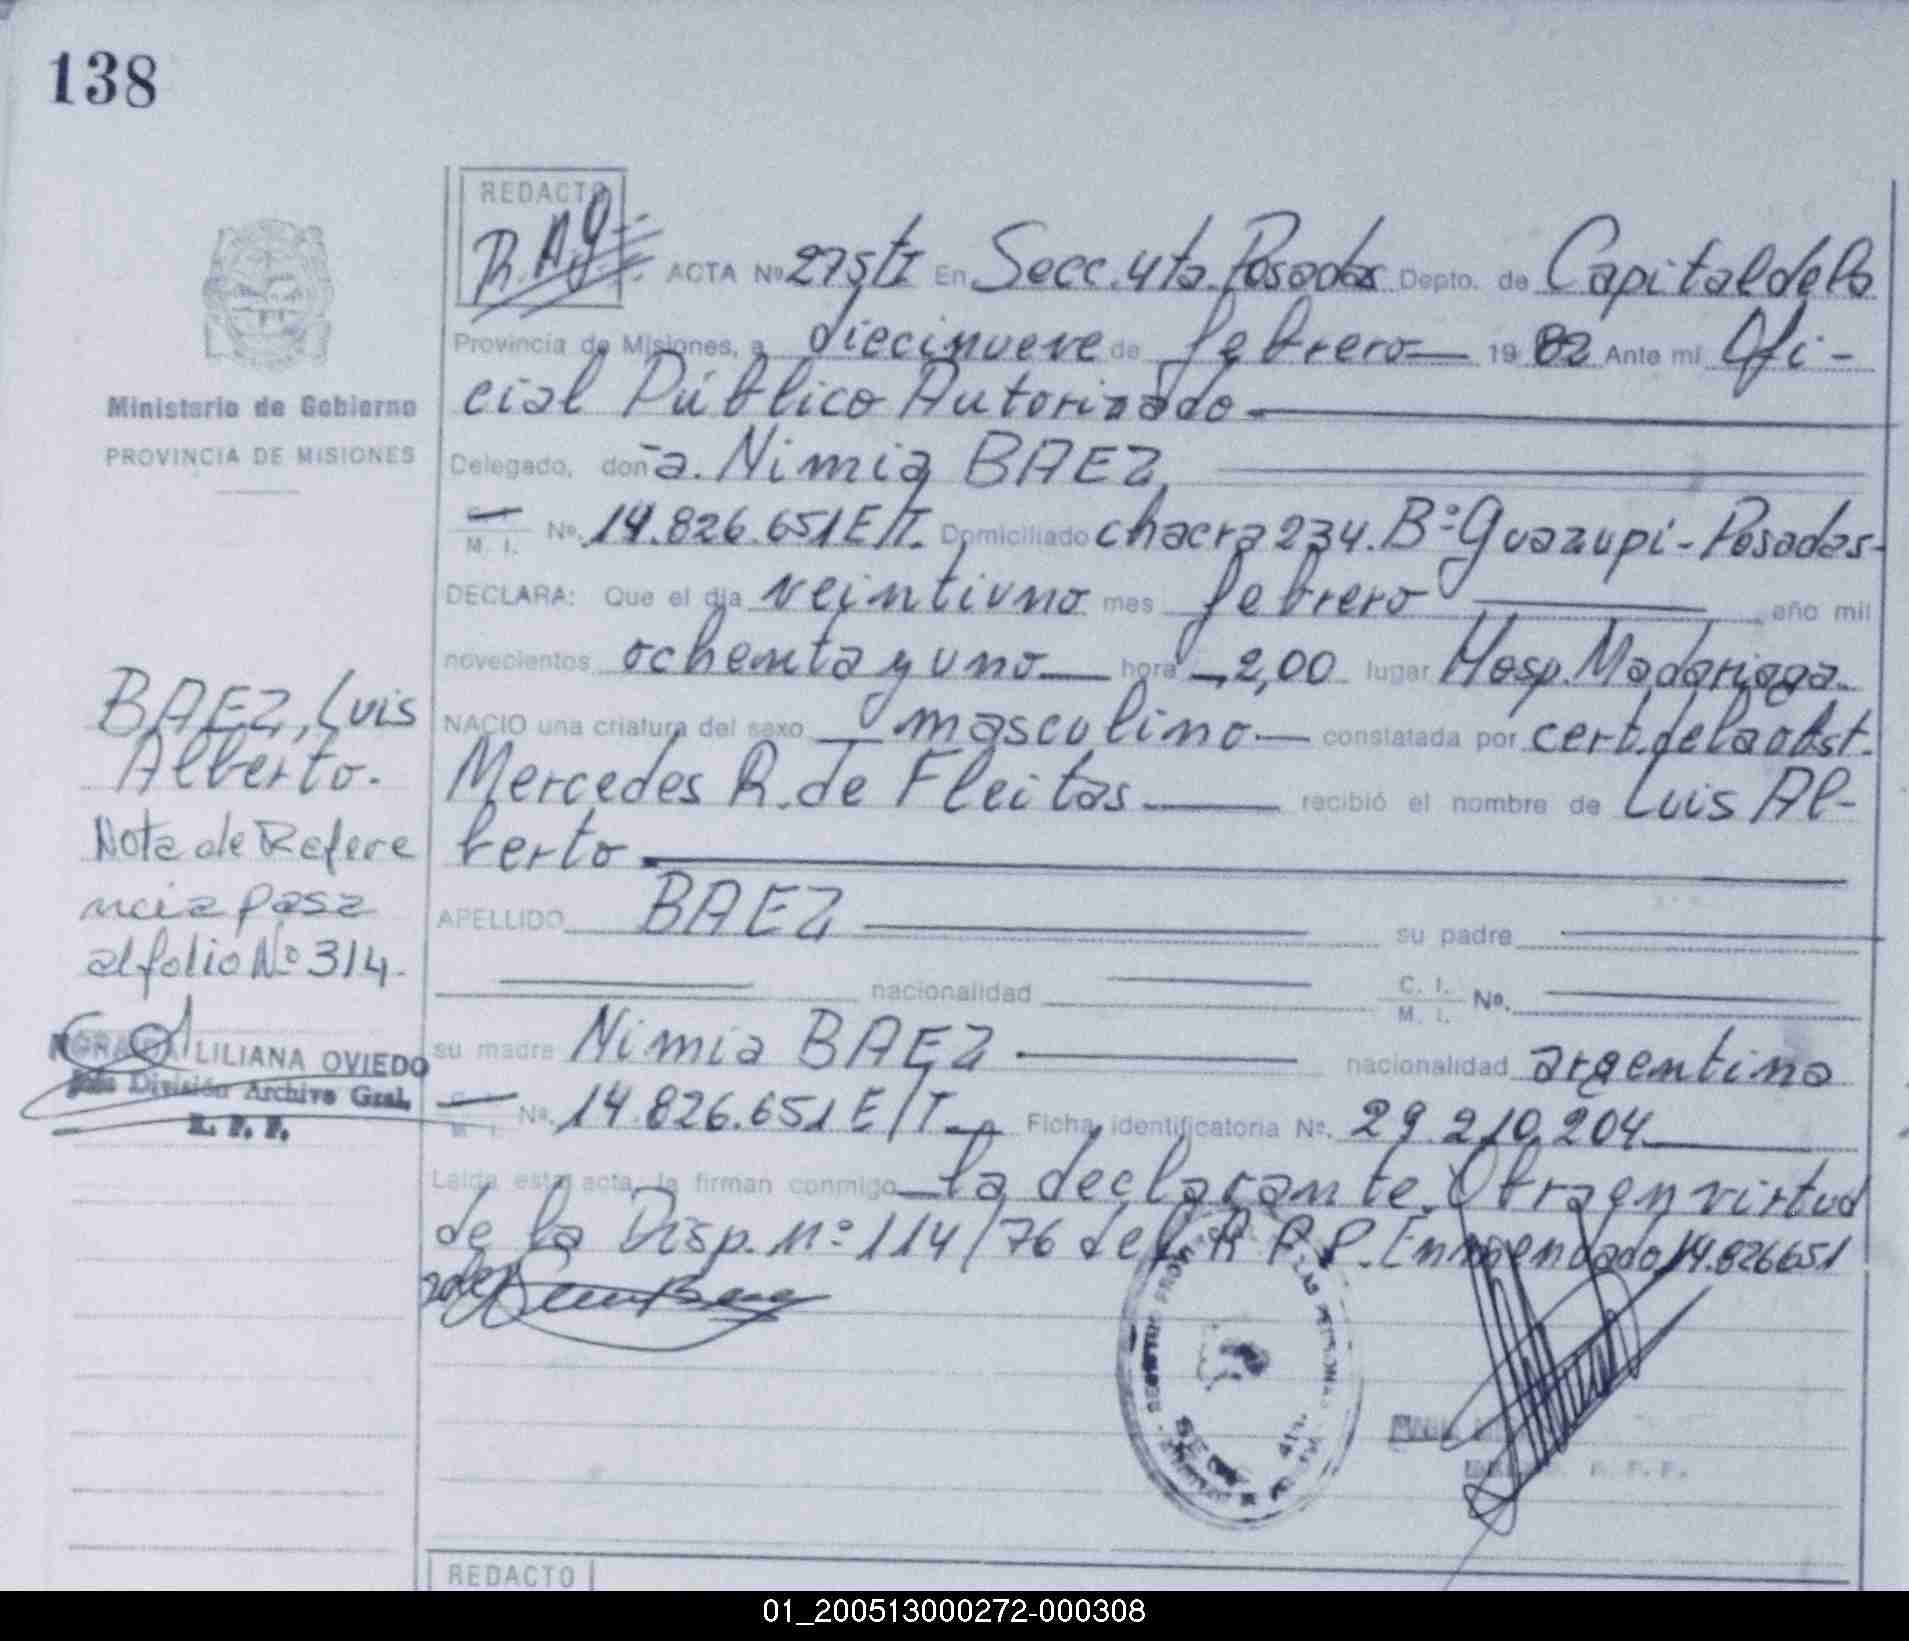 138
REDACTO
R.A.G.
ACTA Nº 275 tI En Secc. 4ta. Posadas Depto. de Capital de la
Provincia de Misiones, a diecinueve de febrero 19 82 Ante mí Ofi-
cial Público Autorizado
Ministerio de Gobierno
PROVINCIA DE MISIONES
Delegado, doña. Nimia BAEZ
M. I. Nº. 14.826.651 E/T. Domiciliado chacra 234. Bº Guazupi - Posadas-
DECLARA: Que el día veintiuno mes febrero año mil
novecientos ochenta y uno hora 2,00 lugar Hosp. Madariaga.
NACIO una criatura del sexo masculino constatada por cert. de la obst.
Mercedes R. de Fleitas recibió el nombre de Luis Al-
berto
APELLIDO BAEZ su padre
nacionalidad C. I. M. I. Nº.
su madre Nimia BAEZ nacionalidad argentina
M. I. Nº. 14.826.651 E/T. Ficha identificatoria Nº. 29.210.204
Leída esta acta, la firman conmigo la declarante. Obra en virtud
de la Disp. nº 114/76 del R.P.P. Enmendado 14.826651
vale
BAEZ, Luis
Alberto.
Nota de Refere
ncia pasa
al folio Nº 314.
LILIANA OVIEDO
Jefa División Archivo Gral.
R. P. P.
R. P. P.
REDACTO
01_200513000272-000308